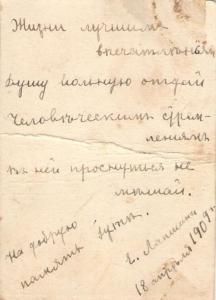 Жизни лучшимъ
впечатлѣньямъ
Душу вольную отдай
Человѣческимъ стрем-
леніямъ
въ ней проснуться не
мѣшай.
На добрую
память
Е. Лапшина
18 апрѣля 1909 г.